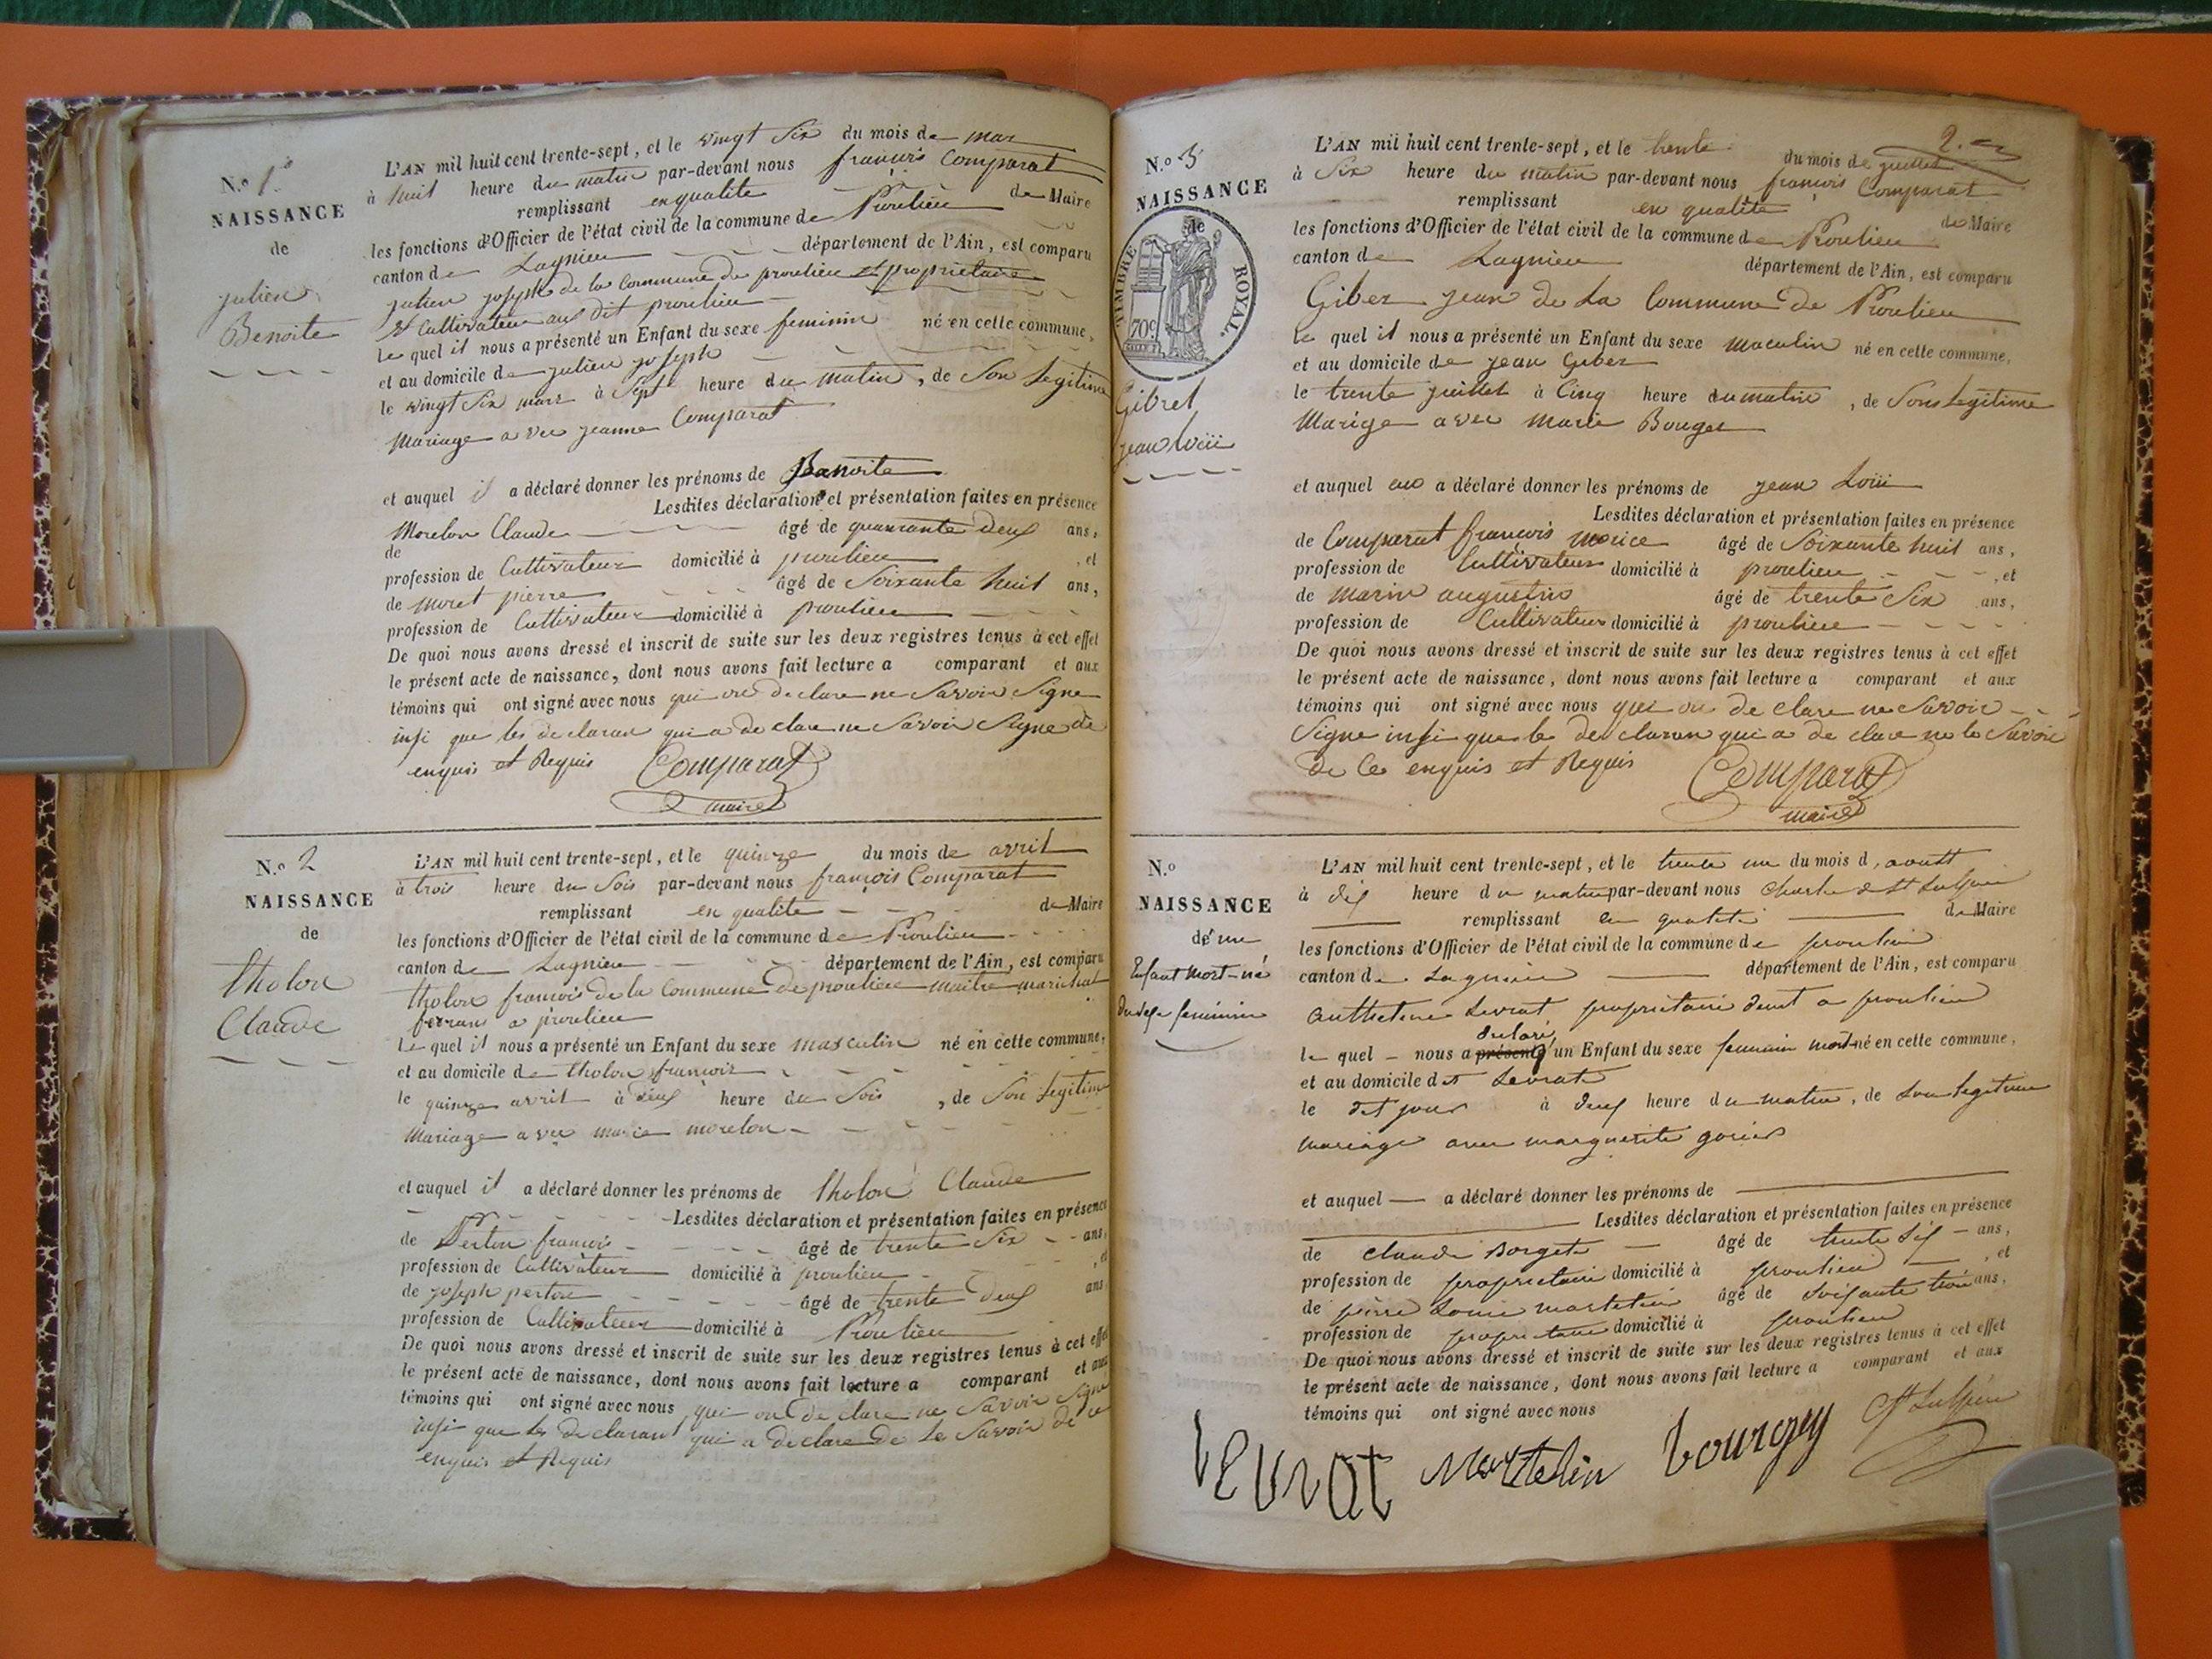 N.º 1º
NAISSANCE
de
julien
Benoite
L'AN mil huit cent trente-sept, et le vingt Six du mois de mar
à huit heure du matin par-devant nous françois Comparat
remplissant en qualite de Maire
les fonctions d'Officier de l'état civil de la commune de Proulieu
canton de Lagnieu département de l'Ain, est comparu
julien joseph de la Commune de proulieu et propriétaire
et Cultivateur au dit proulieu
le quel il nous a présenté un Enfant du sexe feminin né en cette commune,
et au domicile de julien joseph
le vingt Six mars à Sept heure du matin, de Son Legitime
Mariage avec jeanne Comparat
et auquel il a déclaré donner les prénoms de Benoite
Lesdites déclaration et présentation faites en présence
Morelon Claude âgé de quarante deux ans,
de
profession de Cultivateur domicilié à proulieu, et
de Moret pierre âgé de Soixante huit ans,
profession de Cultivateur domicilié à proulieu
De quoi nous avons dressé et inscrit de suite sur les deux registres tenus à cet effet
le présent acte de naissance, dont nous avons fait lecture a comparant et aux
témoins qui ont signé avec nous qui on declare ne Savoir Signe
insi que les declaran qui a de clare ne Savoir Signe de
enquis et Requis Comparat
maire
N.º 2
NAISSANCE
de
tholon
Claude
L'AN mil huit cent trente-sept, et le quinze du mois de avril
à trois heure du Sois par-devant nous françois Comparat
remplissant en qualite de Maire
les fonctions d'Officier de l'état civil de la commune de Proulieu
canton de Lagnieu département de l'Ain, est comparu
tholon francois de la Commune de proulieu maitre marichal
ferrans a proulieu
le quel il nous a présenté un Enfant du sexe masculin né en cette commune,
et au domicile de tholon francois
le quinze avril à deux heure du Sois, de Son Legitime
Mariage avec marie morelon
et auquel il a déclaré donner les prénoms de tholon Claude
Lesdites déclaration et présentation faites en présence
de Perton francois âgé de trente Six ans,
profession de Cultivateur domicilié à proulieu, et
de joseph perton âgé de trente deux ans
profession de Cultivateur domicilié à Proulieu
De quoi nous avons dressé et inscrit de suite sur les deux registres tenus à cet effet
le présent acte de naissance, dont nous avons fait lecture a comparant et aux
témoins qui ont signé avec nous qui on de clare ne Savoir Signe
insi que les declarant qui a declare de Le Savoir de ce
enquis et Requis
2.
N.º 3
NAISSANCE
de
TIMBRE ROYAL.
70c
Gibret
jean loïïi
L'AN mil huit cent trente-sept, et le trente du mois de juillet
à Six heure du matin par-devant nous françois Comparat
remplissant en qualite de Maire
les fonctions d'Officier de l'état civil de la commune de Proulieu
canton de Lagnieu département de l'Ain, est comparu
Giber jean de La Commune de Proulieu
le quel il nous a présenté un Enfant du sexe maculin né en cette commune,
et au domicile de jean Giber
le trente juillet à Cinq heure du matin, de Son Legitime
Marige avec marie Bouget
et auquel a déclaré donner les prénoms de jean Loïïi
Lesdites déclaration et présentation faites en présence
de Comparat francois morice âgé de Soixante huit ans,
profession de Cultivateur domicilié à proulieu, et
de marin augustin âgé de trente Six ans,
profession de Cultivateur domicilié à proulieu
De quoi nous avons dressé et inscrit de suite sur les deux registres tenus à cet effet
le présent acte de naissance, dont nous avons fait lecture a comparant et aux
témoins qui ont signé avec nous qui on de clare ne Savoir
Signe insi que le declaran qui a de clare ne le Savoir
de Ce enquis et Requis Comparat
maire
N.º
NAISSANCE
de une
Enfant mort-né
du sexe feminin
L'AN mil huit cent trente-sept, et le trente un du mois d, aoust
à dix heure du matin par-devant nous Charles de St Sulpin
remplissant en qualité de Maire
les fonctions d'Officier de l'état civil de la commune de proulieu
canton de Lagnieu département de l'Ain, est comparu
Anthelme Levrat propriétaire demt a proulieu
déclaré
le quel nous a présenté un Enfant du sexe feminin mort-né en cette commune,
et au domicile dt Levrat
le dit jour à deux heure du matin, de son legitime
mariage avec marguerite
et auquel a déclaré donner les prénoms de
Lesdites déclaration et présentation faites en présence
de Claude Borget âgé de trente six ans,
profession de propriétaire domicilié à proulieu, et
de pierre Louis martelin âgé de soixante trois ans,
profession de propriétaire domicilié à proulieu
De quoi nous avons dressé et inscrit de suite sur les deux registres tenus à cet effet
le présent acte de naissance, dont nous avons fait lecture a comparant et aux
témoins qui ont signé avec nous
levrat Martelin bourgey St Sulpin